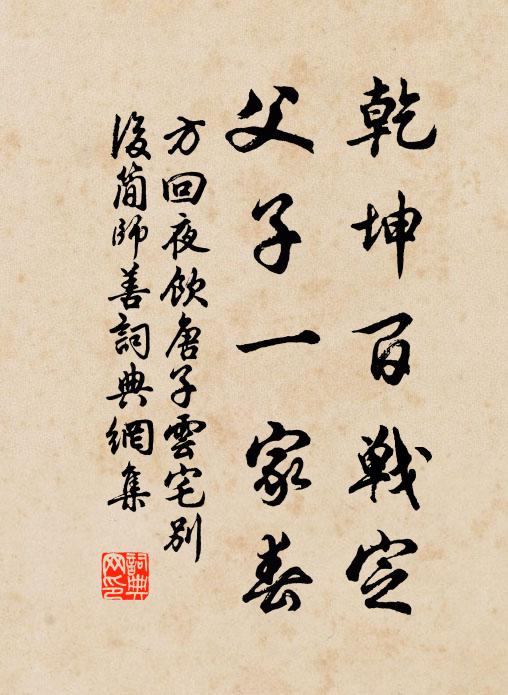 乾坤百戰定
父子一家春
方回夜飲唐子雲宅別
後簡師善詞典網集
詞典
网印